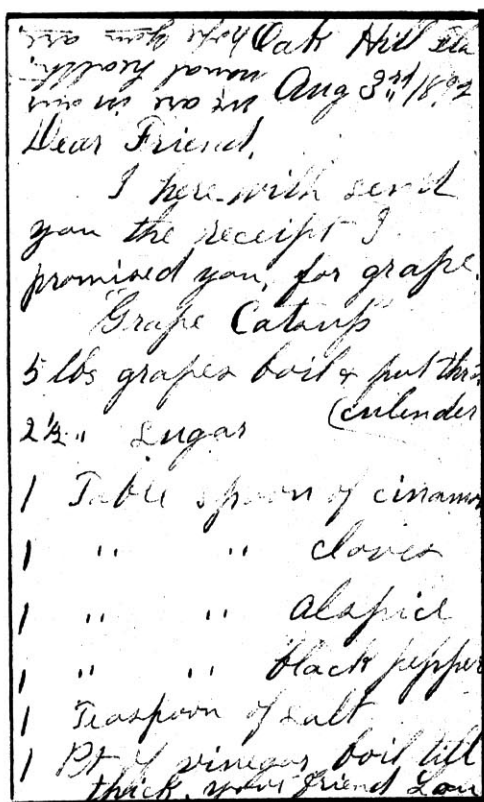 Oak Hill
Aug 3rd
Dear Friend,
I here with send
you the receipt I
promised you, for grape.
"Grape Catsup"
5 lbs grapes boil & put thro
(culender
2½ " Sugar
1 Table spoon of cinamon
1 " " cloves
1 " " alspice
1 " " black pepper
1 Teaspoon of salt
1 Pt of vinegar boil till
thick. your friend Lou
hope you are
usual health.
we are in our